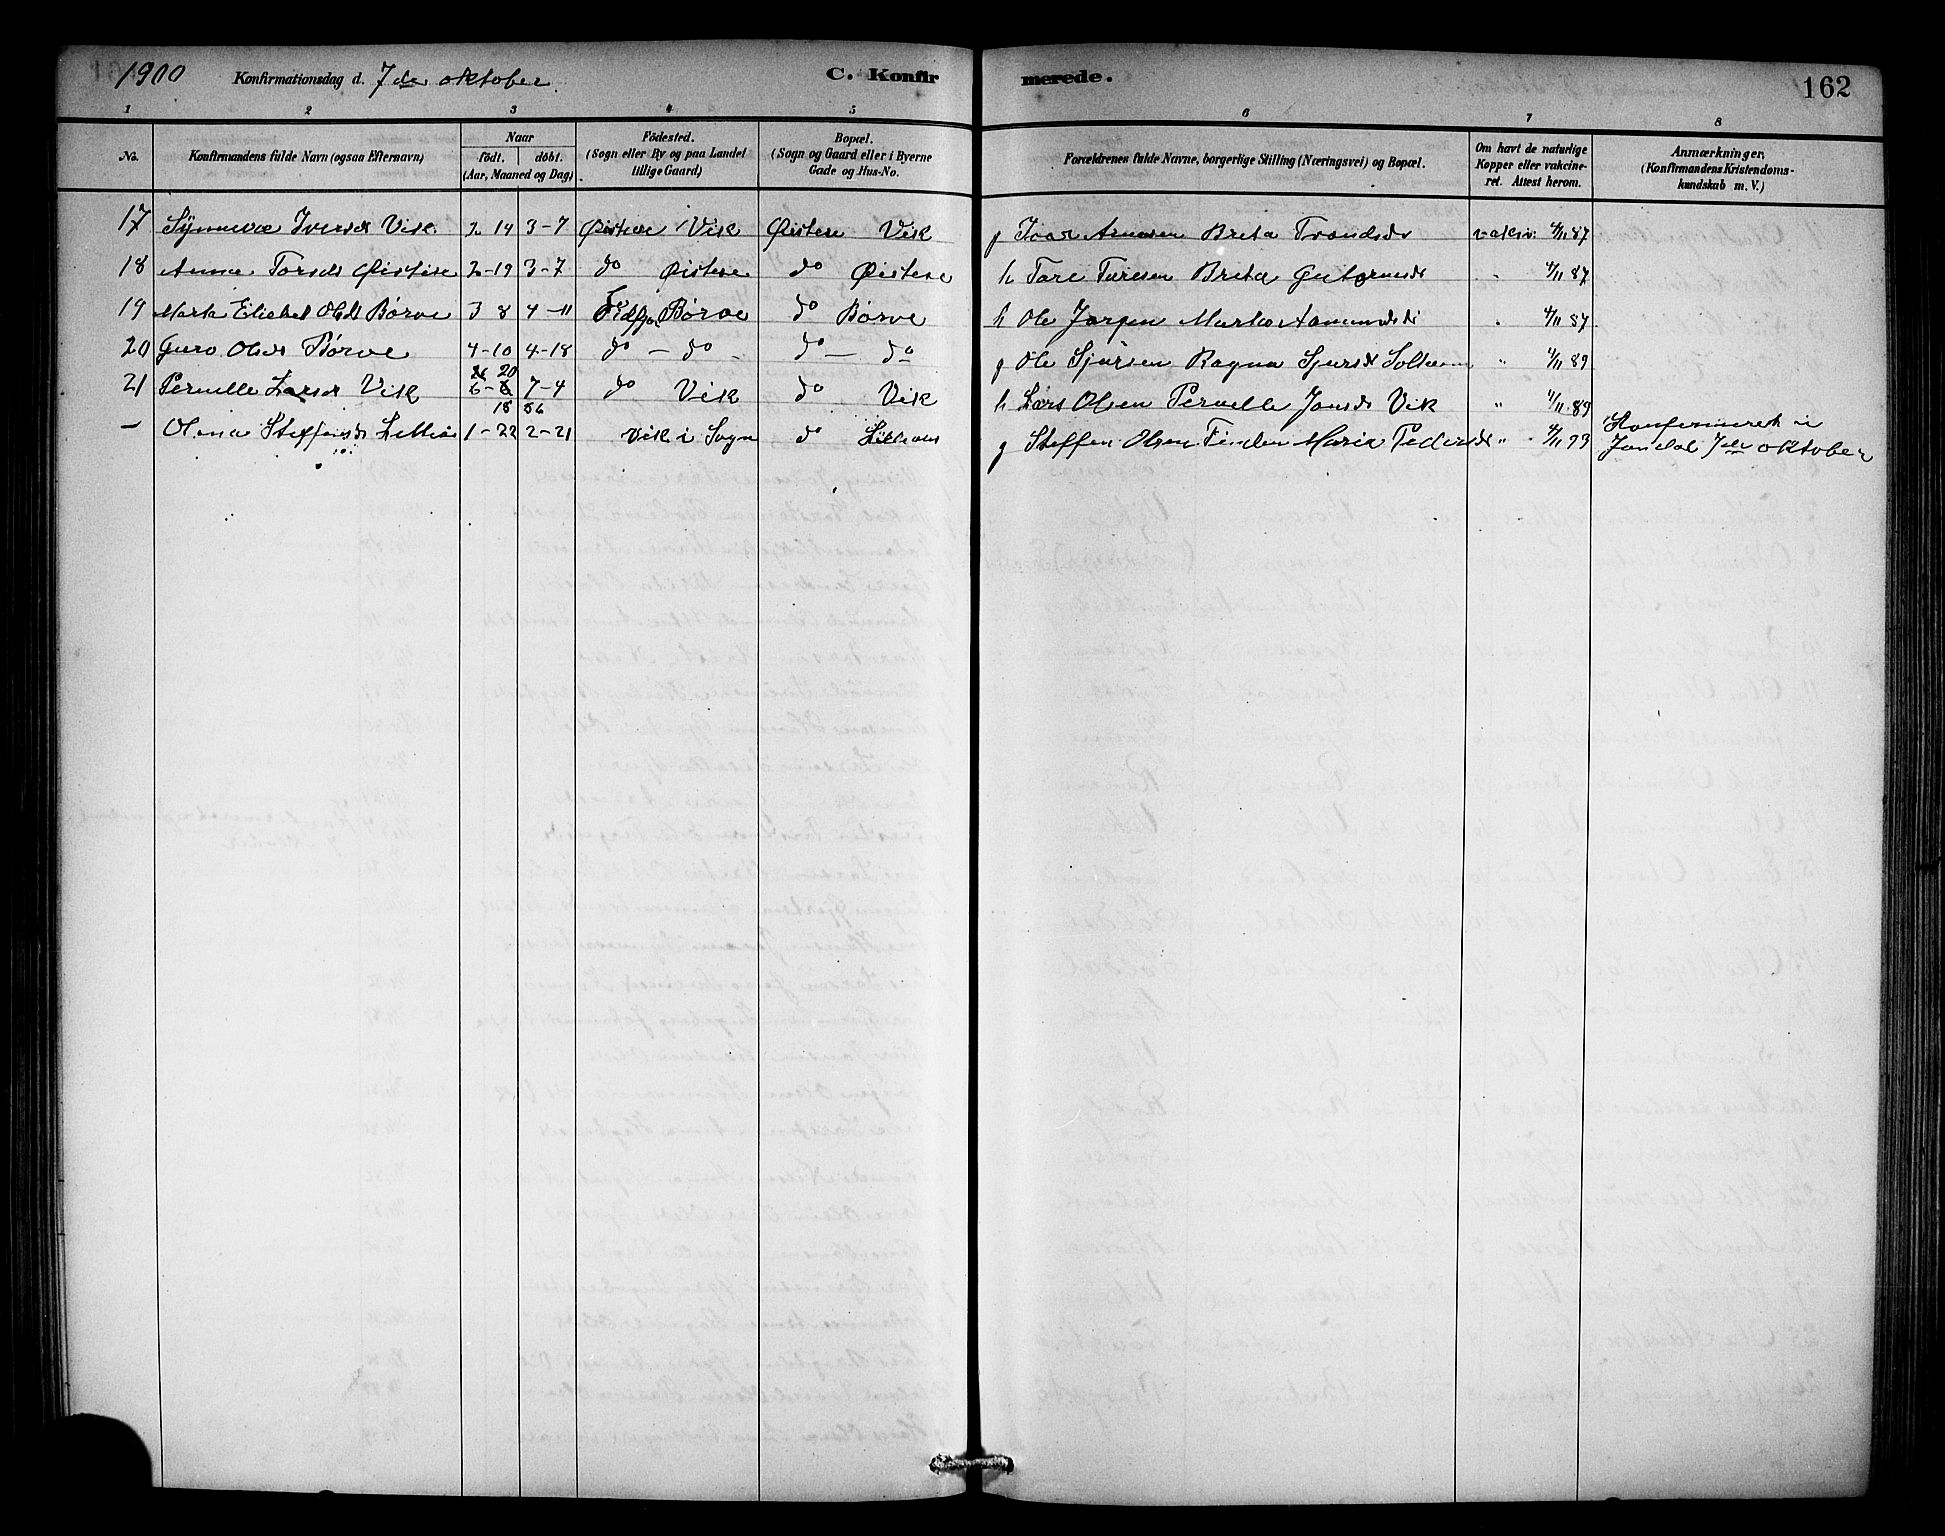 1900 Konfirmationsdag d. 7de oktober. C. Konfir merede. 162
1 2 3 4 5 6 7 8
No. Konfirmandens fulde Navn (ogsaa Efternavn) Naar födt. döbt. (Aar, Maaned og Dag) Födested. (Sogn eller By og paa Landet tillige Gaard) Bopæl. (Sogn og Gaard eller i Byerne Gade og Hus-No. Forældrenes fulde Navne, borgerlige Stilling (Næringsvei) og Bopæl. Om havt de naturlige Kopper eller vakcineret. Attest herom. Anmærkninger, (Konfirmandens Kristendomskundskab m. V.)
17 Synneva Iversd Vik 2 14 3-7 Øistese Vik Øistese Vik g Ivar Arnesen Breta Trondsdr vaksin 4/11 87
18 Anna Torsd Øistese 2-19 3-7 do Øistese do Øistese h Tore Toresen Breta Guttormsd " 4/11 87
19 Marta Elisabet Olsd Børve 3 8 4-11 Børve do Børve h Ole Marta Aamundsd " 4/11 87
20 Guro Olsd Børve 4-10 4-18 do - do - do - do g Ole Sjursen Ragna Sjursd " 4/11 89
21 Pernille Larsd Vik 6- 20 7-4 do Vik do Vik h Lars Olsen Pernille Jonsd Vik " 4/11 89
18 86
- Olina Steffensd 1-22 2-21 Vik i Sogn do g Steffen Olsen Finden Maria Pedersd " 4/11 93 Konfirmeret i
Jondal 7de oktober